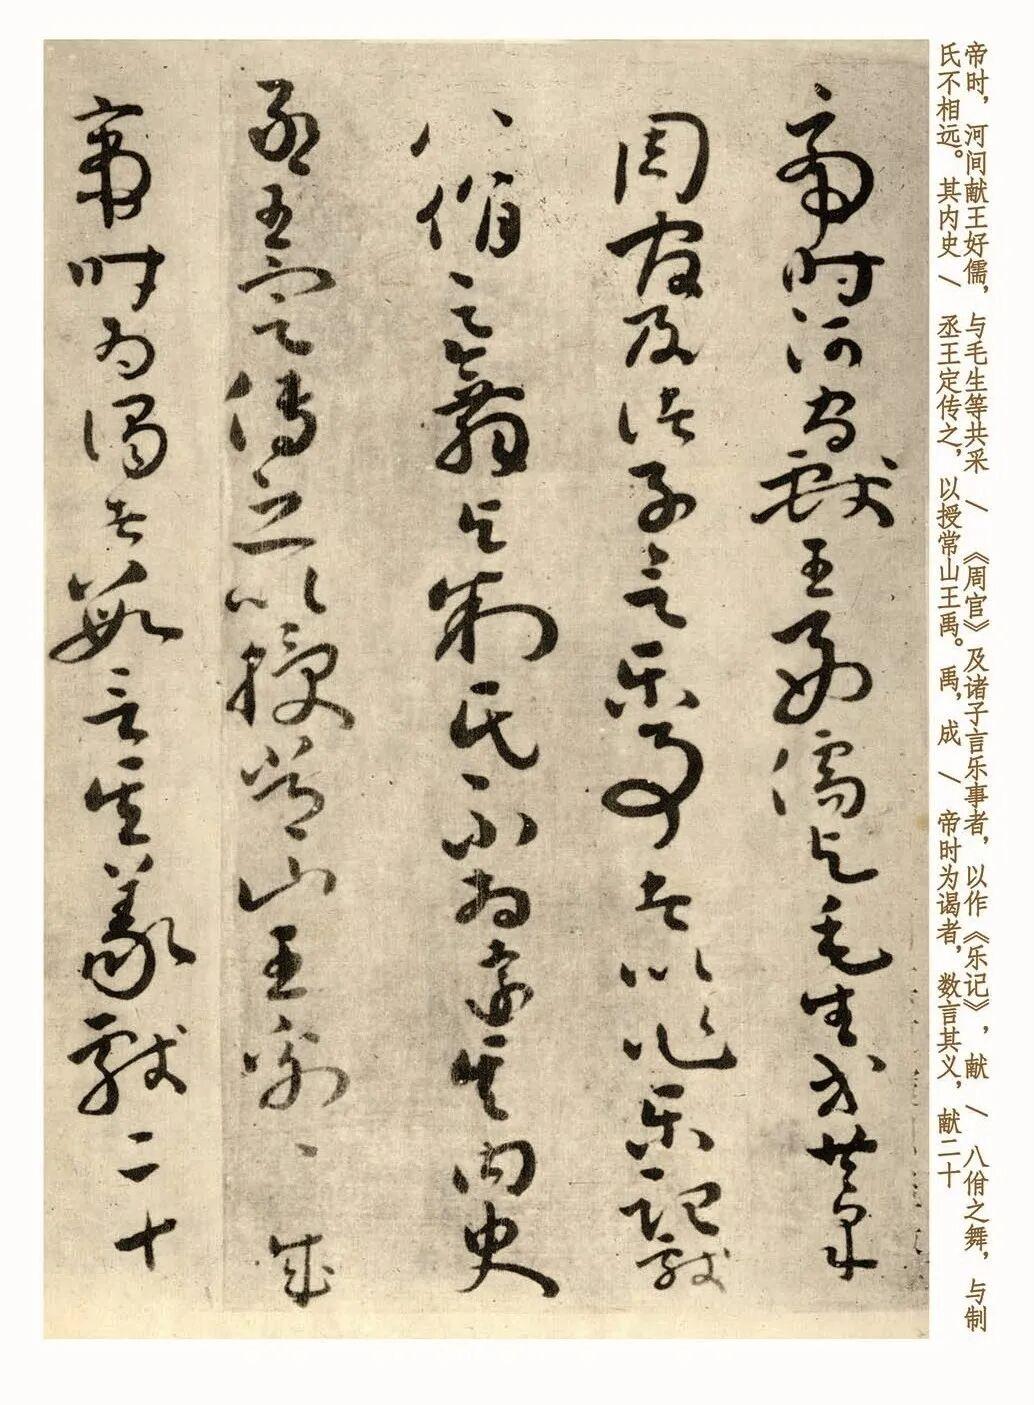 帝时，河间献王好儒，与毛生等共采 / 《周官》及诸子言乐事者，以作《乐记》，献 / 八佾之舞，与制
氏不相远。其内史 / 丞王定传之，以授常山王禹。禹，成 / 帝时为谒者，数言其义，献二十
帝時河間獻王好儒與毛生等共采
周官及諸子言樂事者以作樂記獻
八佾之舞與制氏不相遠其內史
丞王定傳之以授常山王禹〻成
帝時為謁者數言其義獻二十